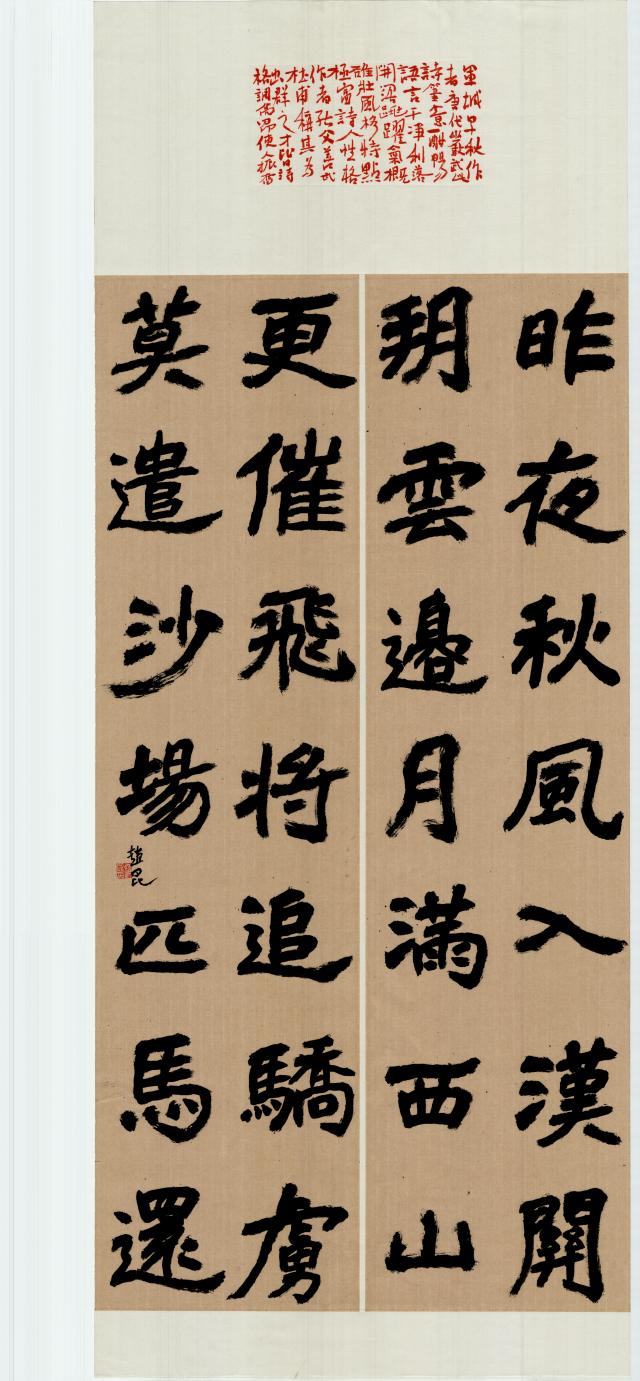 軍城早秋作
者唐代嚴武
詩筆意酣暢
語言干净利落
跳躍氣概
雄壯風格特點
極富詩人性格
作者父武
杜甫稱其為
出群之才此詩
格調高昂使人振奮
昨夜秋風入漢關
朔雲邊月滿西山
更催飛將追驕虜
莫遣沙場匹馬還
趙昆